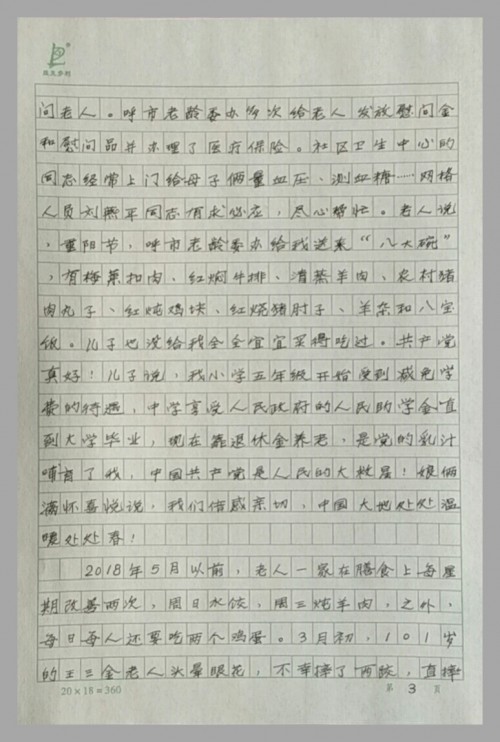 问老人。呼市老龄委办多次给老人发放慰问金
和慰问品并办理了医疗保险。社区卫生中心的
同志经常上门给母子俩量血压、测血糖……网格
人员刘燕平同志有求必应,尽心帮忙。老人说
,重阳节,呼市老龄委办给我送来“八大碗”
,有梅菜扣肉、红焖牛排、清蒸羊肉、农村猪
肉丸子、红炖鸡块、红烧猪肘子、羊杂和八宝
饭。儿子也没给我全全宜宜买得吃过。共产党
真好!儿子说,我小学五年级开始受到减免学
费的待遇,中学享受人民政府的人民助学金直
到大学毕业,现在靠退休金养老,是党的乳汁
哺育了我,中国共产党是人民的大救星!娘俩
满怀喜悦说,我们倍感亲切,中国大地处处温
暖处处春!
2018年5月以前,老人一家在膳食上每星
期改善两次,周日水饺,周三炖羊肉,之外,
每日每人还要吃两个鸡蛋。3月初,101岁
的王三金老人头晕眼花,不幸摔了两跤,直摔
20×18=360 第 3 页